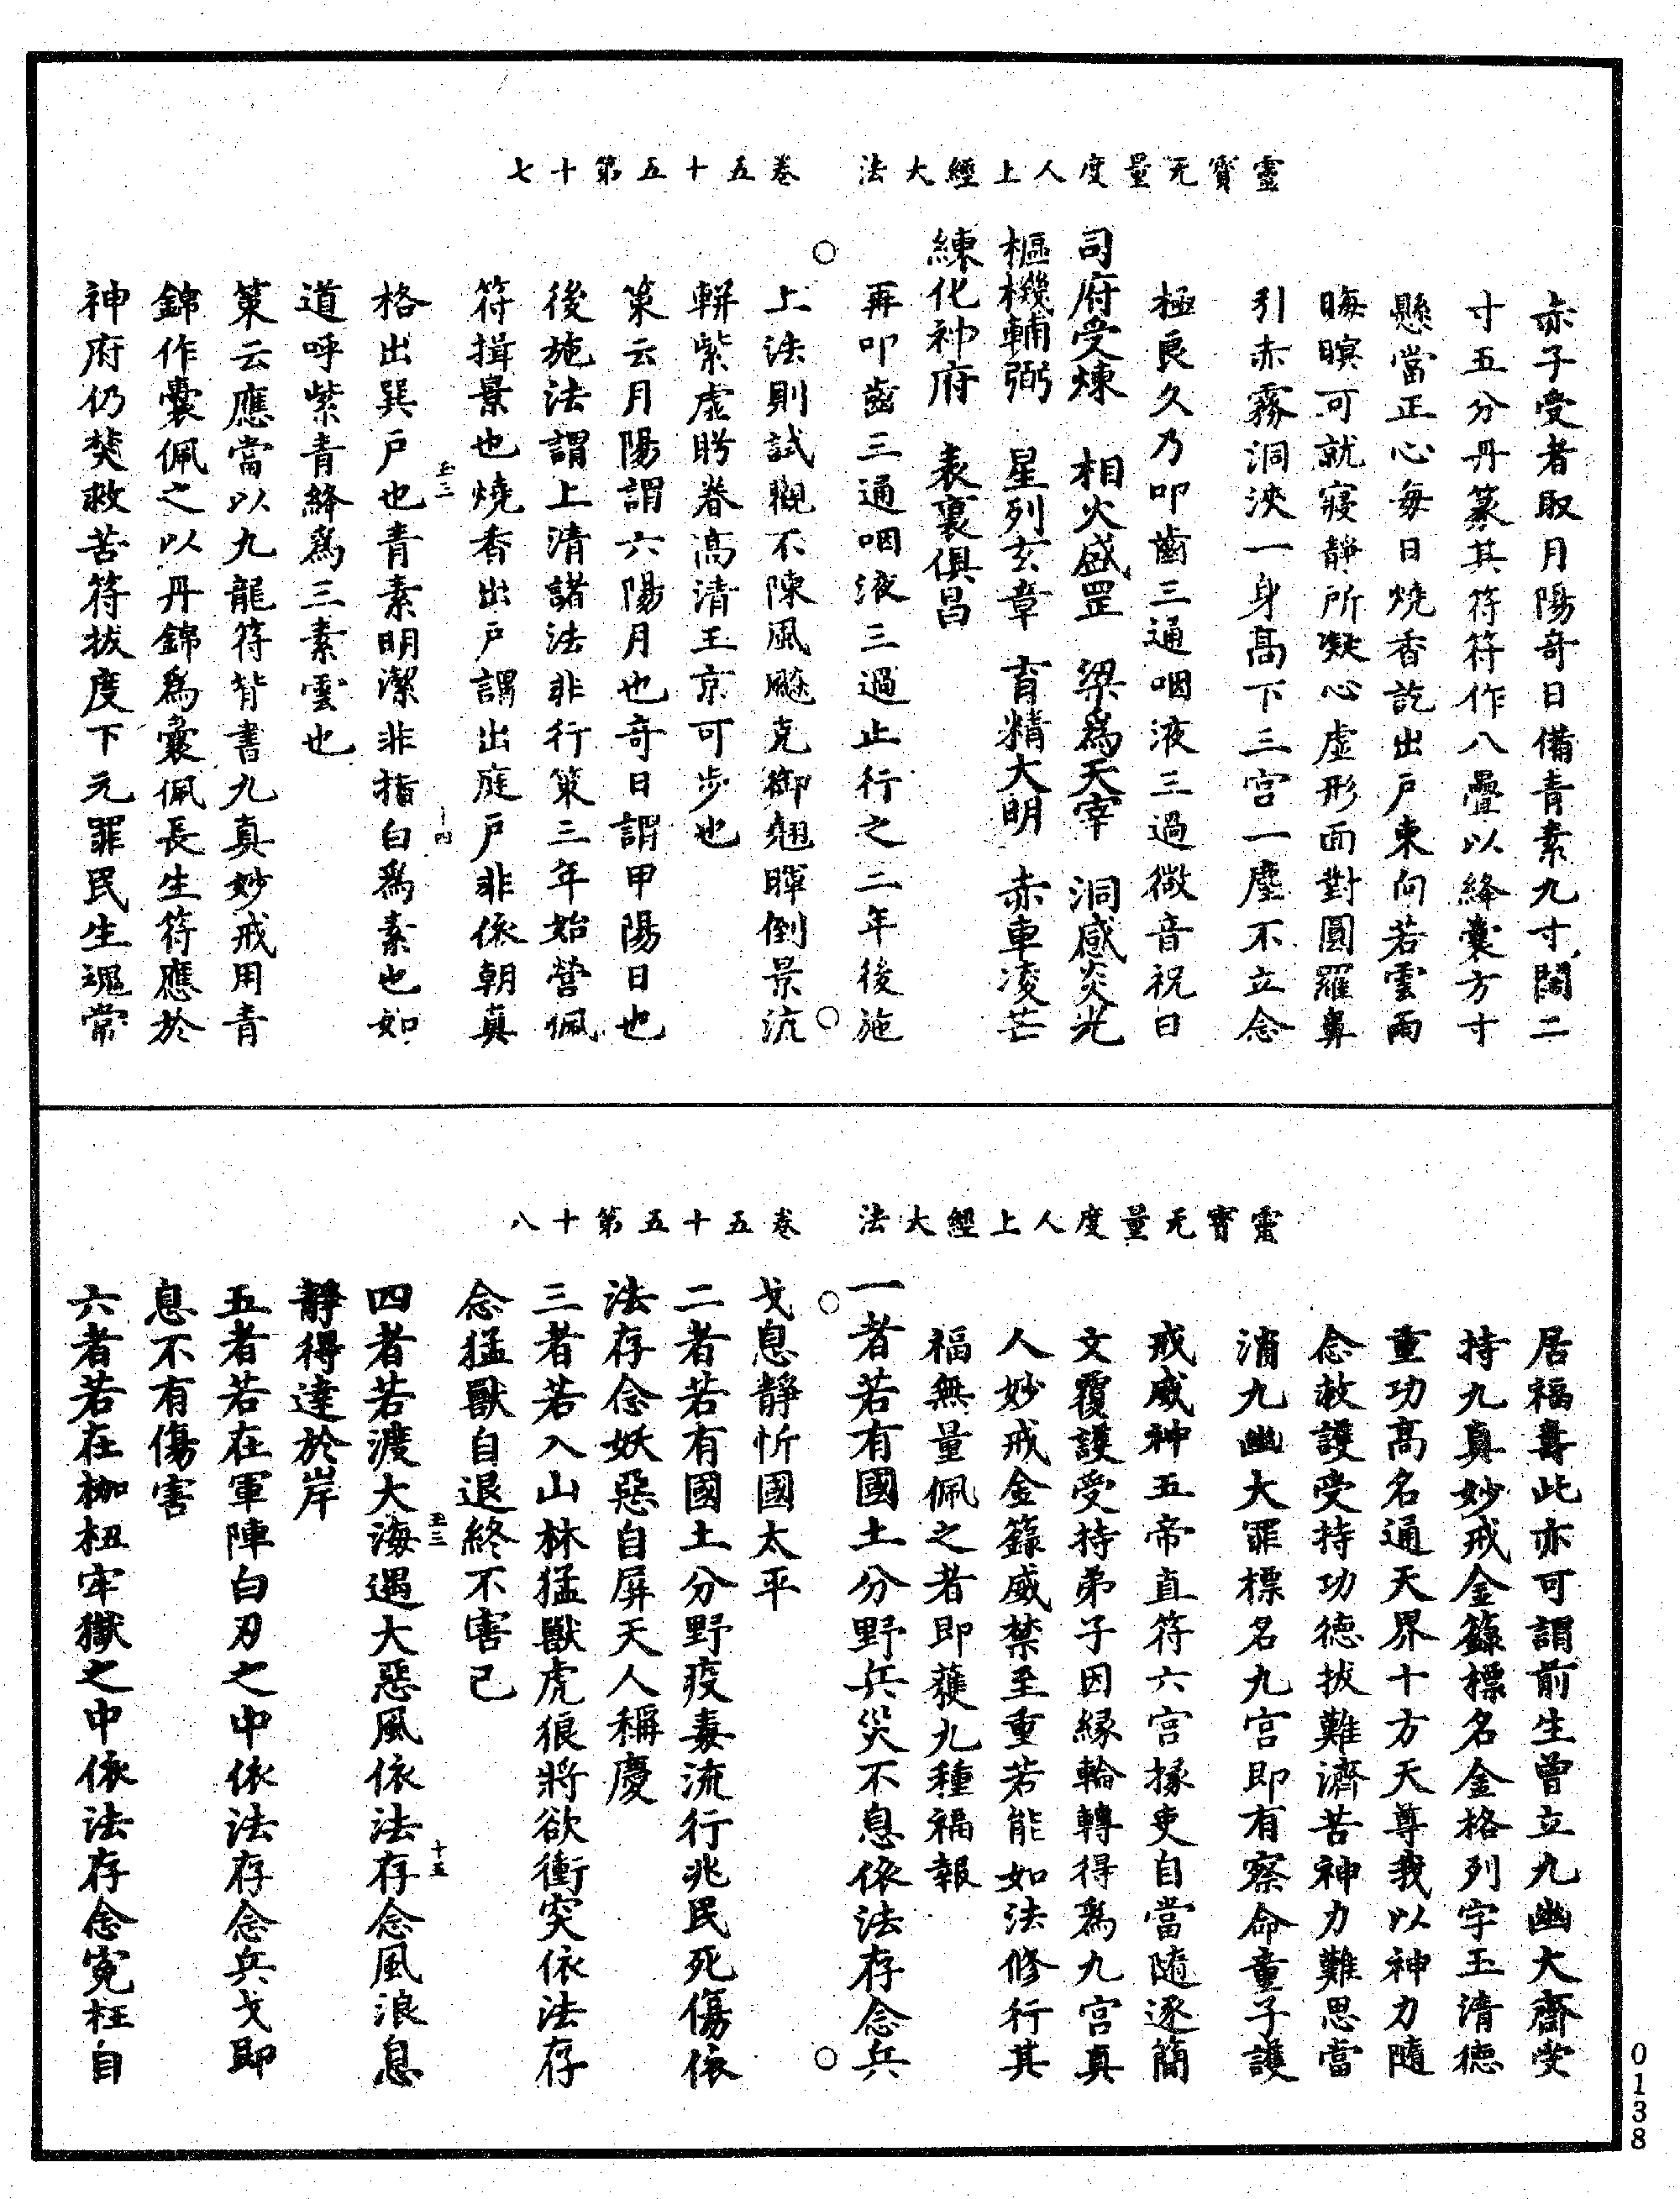 靈寶无量度人上經大法　卷五十五第十七
赤子受者取月陽奇日備青素九寸闊二
寸五分丹篆其符符作八疊以絳囊方寸
懸當正心每日燒香訖出戶東向若雲雨
晦暝可就寢靜所凝心虛形面對圓羅鼻
引赤霧洞浹一身高下三宮一塵不立念
極良久乃叩齒三通咽液三過微音祝曰
司府受煉　相火盛罡　梁為天宰　洞感炎光
樞機輔弼　星列玄章　育精大明　赤車凌芒
練化神府　表裏俱昌
再叩齒三通咽液三過止行之二年後施
上法則試觀不陳風飈克御翹暉倒景流
軿紫虛眄眷高清玉京可步也
策云月陽謂六陽月也奇日謂甲陽日也
後施法謂上清諸法非行策三年始營佩
符揖景也燒香出戶謂出庭戶非依朝真
格出巽戶也青素明潔非指白為素也如
道呼紫青絳為三素雲也
策云應當以九龍符背書九真妙戒用青
錦作囊佩之以丹錦為囊佩長生符應於
神府仍焚救苦符拔度下元罪民生魂常
靈寶无量度人上經大法　卷五十五第十八
居福壽此亦可謂前生曾立九幽大齋受
持九真妙戒金籙標名金格列字玉清德
重功高名通天界十方天尊我以神力隨
念救護受持功德拔難濟苦神力難思當
消九幽大罪標名九宮即有察命童子護
戒威神五帝直符六宮掾吏自當隨逐簡
文覆護受持弟子因緣輪轉得為九宮真
人妙戒金籙威禁至重若能如法修行其
福無量佩之者即獲九種福報
一者若有國土分野兵災不息依法存念兵
戈息靜忻國太平
二者若有國土分野疫毒流行兆民死傷依
法存念妖惡自屏天人稱慶
三者若入山林猛獸虎狼將欲衝突依法存
念猛獸自退終不害己
四者若渡大海遇大惡風依法存念風浪息
靜得達於岸
五者若在軍陣白刃之中依法存念兵戈即
息不有傷害
六者若在枷杻牢獄之中依法存念冤枉自
0138